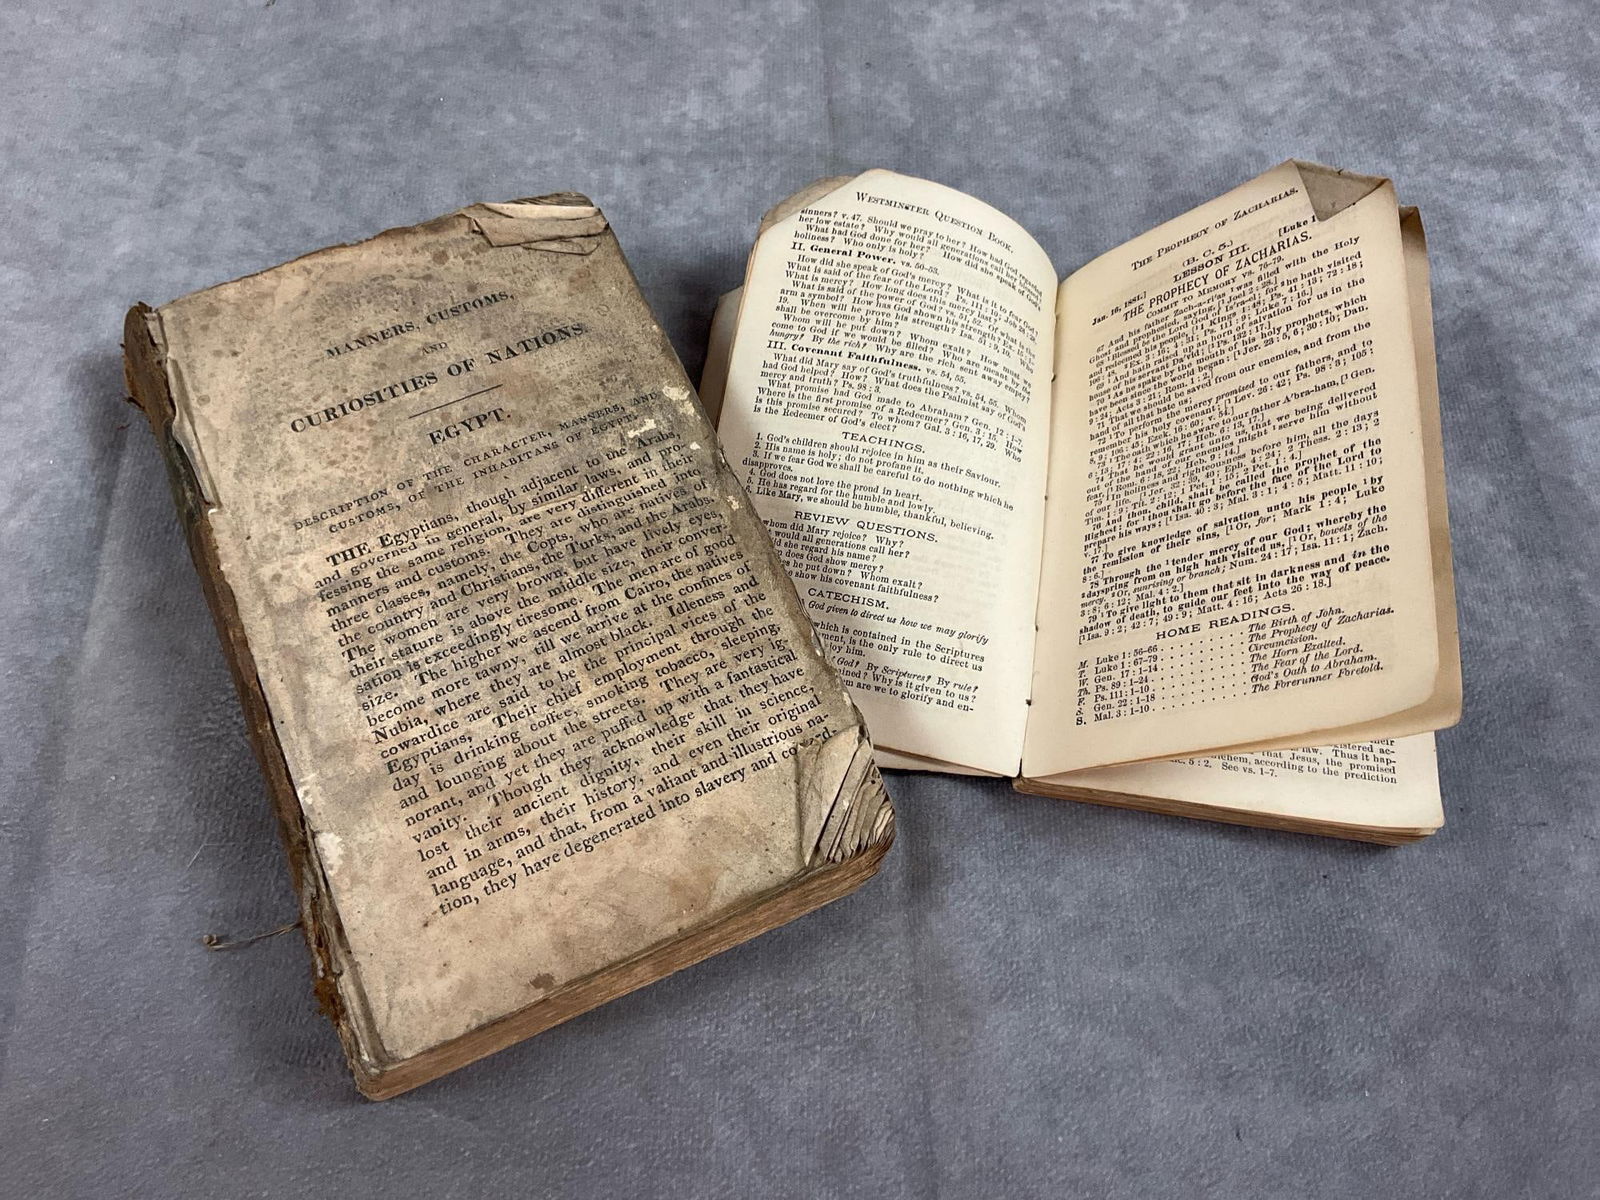 MANNERS, CUSTOMS,
AND
CURIOSITIES OF NATIONS.
EGYPT.
DESCRIPTION OF THE CHARACTER, MANNERS, AND
CUSTOMS, OF THE INHABITANS OF EGYPT.
THE Egyptians, though adjacent to the Arabs,
and governed in general, by similar laws, and pro-
fessing the same religion, are very different in their
manners and customs. They are distinguished into
three classes, namely, the Copts, who are natives of
the country and Christians, the Turks, and the Arabs.
The women are very brown, but have lively eyes,
their stature is above the middle size, their conver-
sation is exceedingly tiresome. The men are of good
size. The higher we ascend from Cairo, the natives
become more tawny, till we arrive at the confines of
Nubia, where they are almost black. Idleness and
cowardice are said to be the principal vices of the
Egyptians, Their chief employment through the
day is drinking coffee, smoking tobacco, sleeping,
and lounging about the streets. They are very ig-
norant, and yet they are puffed up with a fantastical
vanity. Though they acknowledge that they have
lost their ancient dignity, their skill in science,
and in arms, their history, and even their original
language, and that, from a valiant and illustrious na-
tion, they have degenerated into slavery and coward-
WESTMINSTER QUESTION BOOK.
sinners? v. 47. Should we pray to her? How had God regarded
her low estate? Why would all generations call her
What had God done for her? How did she speak of God's
holiness? Who only is holy?
II. General Power. vs. 50-53.
How did she speak of God's mercy? What is it to fear God?
What is said of the fear of the Lord? Ps. 111:10; Job 28:28.
What is mercy? How long does this mercy last?
What is said of the power of God? vs. 51, 52. Of what is the
arm a symbol? How has God shown his strength?
19. When will he prove his strength? Isa. 51:9, 10. How
shall be overcome by him?
Whom will he put down? Whom exalt? How must we
come to God if we would be filled? Who are meant by the
hungry? By the rich? Why are the rich sent away empty?
III. Covenant Faithfulness. vs. 54, 55.
What did Mary say of God's truthfulness? vs. 54, 55. Whom
had God helped? How? What does the Psalmist say of God's
mercy and truth? Ps. 98:3.
What promise had God made to Abraham? Gen. 12:1-7.
Where is the first promise of a Redeemer? Gen. 3:15. How
is this promise secured? To whom? Gal. 3:16, 17, 29. Who
is the Redeemer of God's elect?
TEACHINGS.
1. God's children should rejoice in him as their Saviour.
2. His name is holy; do not profane it.
3. If we fear God we shall be careful to do nothing which he
disapproves.
4. God does not love the proud in heart.
5. He has regard for the humble and lowly.
6. Like Mary, we should be humble, thankful, believing.
REVIEW QUESTIONS.
whom did Mary rejoice? Why?
would all generations call her?
she regard his name?
does God show mercy?
he put down? Whom exalt?
show his covenant faithfulness?
CATECHISM.
God given to direct us how we may glorify
which is contained in the Scriptures
is the only rule to direct us
joy him.
of God? By Scriptures? By rule?
Why is it given to us?
are we to glorify and en-
THE PROPHECY OF ZACHARIAS.
(B. C. 5.) [Luke 1
LESSON III.
Jan. 16, 1881.]
THE PROPHECY OF ZACHARIAS.
COMMIT TO MEMORY vs. 76-79.
67 And his father Zach-a-ri'as was filled with the Holy
Ghost, and prophesied, saying, [Joel 2:28.]
68 Blessed be the Lord God of Is'ra-el; for he hath visited
and redeemed his people,
69 And hath raised up an horn of salvation for us in the
house of his servant David;
70 As he spake by the mouth of his holy prophets, which
have been since the world began:
71 That we should be saved from our enemies, and from the
hand of all that hate us;
72 To perform the mercy promised to our fathers, and to
remember his holy covenant;
73 The oath which he sware to our father A'bra-ham,
74 That he would grant unto us, that we being delivered
out of the hand of our enemies might serve him without
fear,
75 In holiness and righteousness before him, all the days
of our life.
76 And thou, child, shalt be called the prophet of the
Highest: for thou shalt go before the face of the Lord to
prepare his ways;
77 To give knowledge of salvation unto his people by
the remission of their sins, [Or, for; Mark 1:4; Luke
78 Through the tender mercy of our God; whereby the
dayspring from on high hath visited us, [Or, bowels of the
mercy. Or, sunrising or branch; Num. 24:17; Isa. 11:1; Zach.
3:8; 6:12; Mal. 4:2.]
79 To give light to them that sit in darkness and in the
shadow of death, to guide our feet into the way of peace.
[Isa. 9:2; 42:7; 49:9; Matt. 4:16; Acts 26:18.]
HOME READINGS.
M. Luke 1:56-66 The Birth of John.
T. Luke 1:67-79 The Prophecy of Zacharias.
W. Gen. 17:1-14 Circumcision.
Th. Ps. 89:1-24 The Horn Exalted.
F. Ps. 111:1-10 The Fear of the Lord.
S. Gen. 22:1-18 God's Oath to Abraham.
S. Mal. 3:1-10 The Forerunner Foretold.
that Jesus, the promised
according to the prediction
5:2. See vs. 1-7.